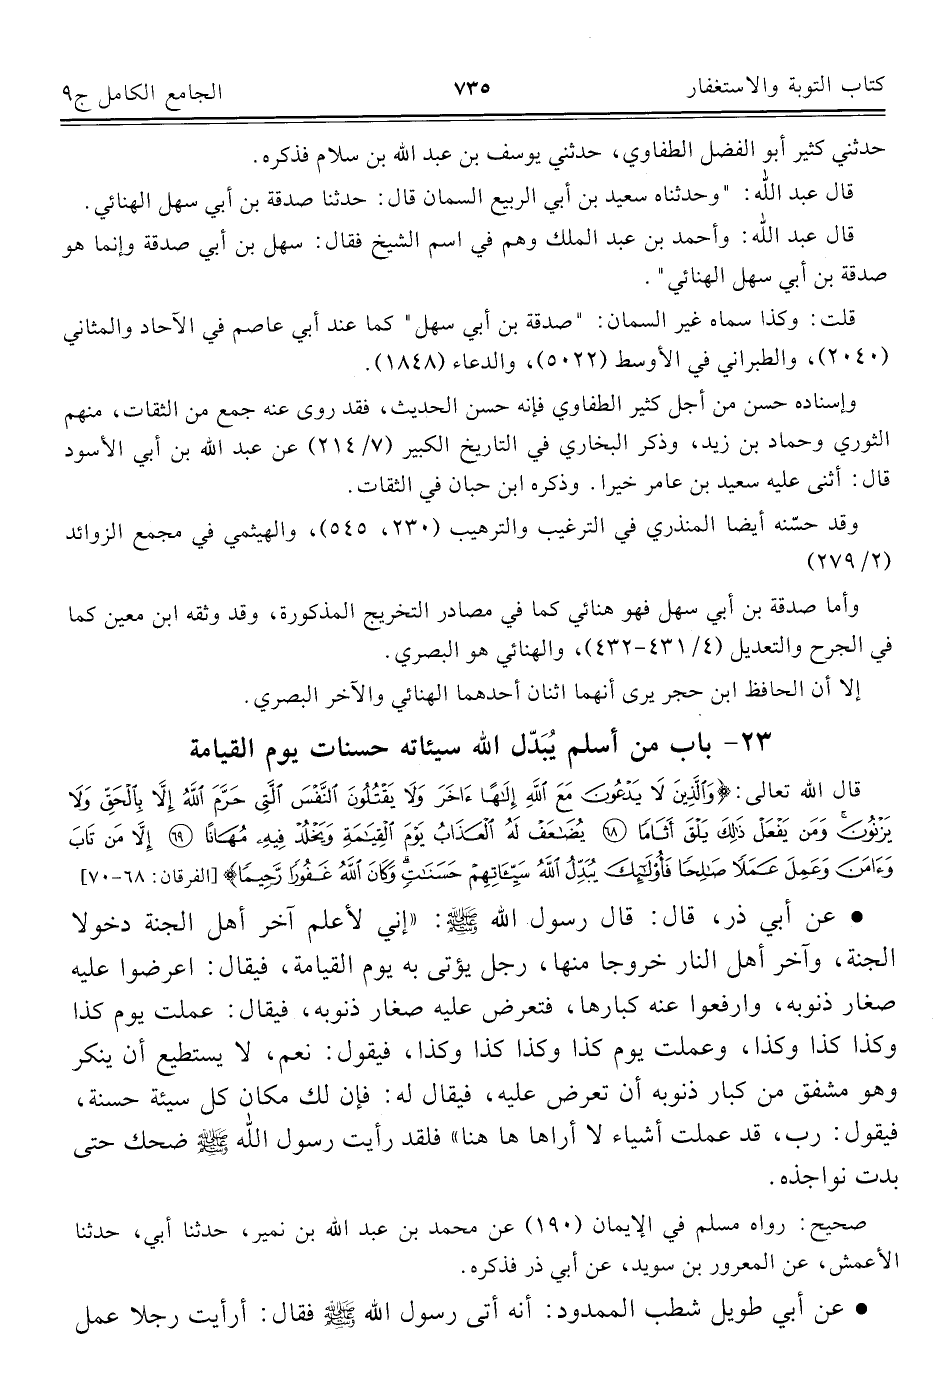 كتاب التوبة والاستغفار ٧٣٥ الجامع الكامل ج٩
حدثني كثير أبو الفضل الطفاوي، حدثني يوسف بن عبد الله بن سلام فذكره.
قال عبد الله: "وحدثناه سعيد بن أبي الربيع السمان قال: حدثنا صدقة بن أبي سهل الهنائي.
قال عبد الله: وأحمد بن عبد الملك وهم في اسم الشيخ فقال: سهل بن أبي صدقة وإنما هو
صدقة بن أبي سهل الهنائي".
قلت: وكذا سماه غير السمان: "صدقة بن أبي سهل" كما عند أبي عاصم في الآحاد والمثاني
(٢٠٤٠)، والطبراني في الأوسط (٥٠٢٢)، والدعاء (١٨٤٨).
وإسناده حسن من أجل كثير الطفاوي فإنه حسن الحديث، فقد روى عنه جمع من الثقات، منهم
الثوري وحماد بن زيد، وذكر البخاري في التاريخ الكبير (٧/ ٢١٤) عن عبد الله بن أبي الأسود
قال: أثنى عليه سعيد بن عامر خيرا. وذكره ابن حبان في الثقات.
وقد حسّنه أيضا المنذري في الترغيب والترهيب (٢٣٠، ٥٤٥)، والهيثمي في مجمع الزوائد
(٢/ ٢٧٩)
وأما صدقة بن أبي سهل فهو هنائي كما في مصادر التخريج المذكورة، وقد وثقه ابن معين كما
في الجرح والتعديل (٤/ ٤٣١-٤٣٢)، والهنائي هو البصري.
إلا أن الحافظ ابن حجر يرى أنهما اثنان أحدهما الهنائي والآخر البصري.
٢٣- باب من أسلم يُبَدّل الله سيئاته حسنات يوم القيامة
قال الله تعالى: ﴿وَٱلَّذِينَ لَا يَدۡعُونَ مَعَ ٱللَّهِ إِلَٰهًا ءَاخَرَ وَلَا يَقۡتُلُونَ ٱلنَّفۡسَ ٱلَّتِي حَرَّمَ ٱللَّهُ إِلَّا بِٱلۡحَقِّ وَلَا
يَزۡنُونَۚ وَمَن يَفۡعَلۡ ذَٰلِكَ يَلۡقَ أَثَامٗا ٦٨ يُضَٰعَفۡ لَهُ ٱلۡعَذَابُ يَوۡمَ ٱلۡقِيَٰمَةِ وَيَخۡلُدۡ فِيهِۦ مُهَانًا ٦٩ إِلَّا مَن تَابَ
وَءَامَنَ وَعَمِلَ عَمَلٗا صَٰلِحٗا فَأُوْلَٰٓئِكَ يُبَدِّلُ ٱللَّهُ سَيِّـَٔاتِهِمۡ حَسَنَٰتٖۗ وَكَانَ ٱللَّهُ غَفُورٗا رَّحِيمٗا﴾ [الفرقان: ٦٨-٧٠]
• عن أبي ذر، قال: قال رسول الله ﷺ: «إني لأعلم آخر أهل الجنة دخولا
الجنة، وآخر أهل النار خروجا منها، رجل يؤتى به يوم القيامة، فيقال: اعرضوا عليه
صغار ذنوبه، وارفعوا عنه كبارها، فتعرض عليه صغار ذنوبه، فيقال: عملت يوم كذا
وكذا كذا وكذا، وعملت يوم كذا وكذا كذا وكذا، فيقول: نعم، لا يستطيع أن ينكر
وهو مشفق من كبار ذنوبه أن تعرض عليه، فيقال له: فإن لك مكان كل سيئة حسنة،
فيقول: رب، قد عملت أشياء لا أراها ها هنا» فلقد رأيت رسول الله ﷺ ضحك حتى
بدت نواجذه.
صحيح: رواه مسلم في الإيمان (١٩٠) عن محمد بن عبد الله بن نمير، حدثنا أبي، حدثنا
الأعمش، عن المعرور بن سويد، عن أبي ذر فذكره.
• عن أبي طويل شطب الممدود: أنه أتى رسول الله ﷺ فقال: أرأيت رجلا عمل